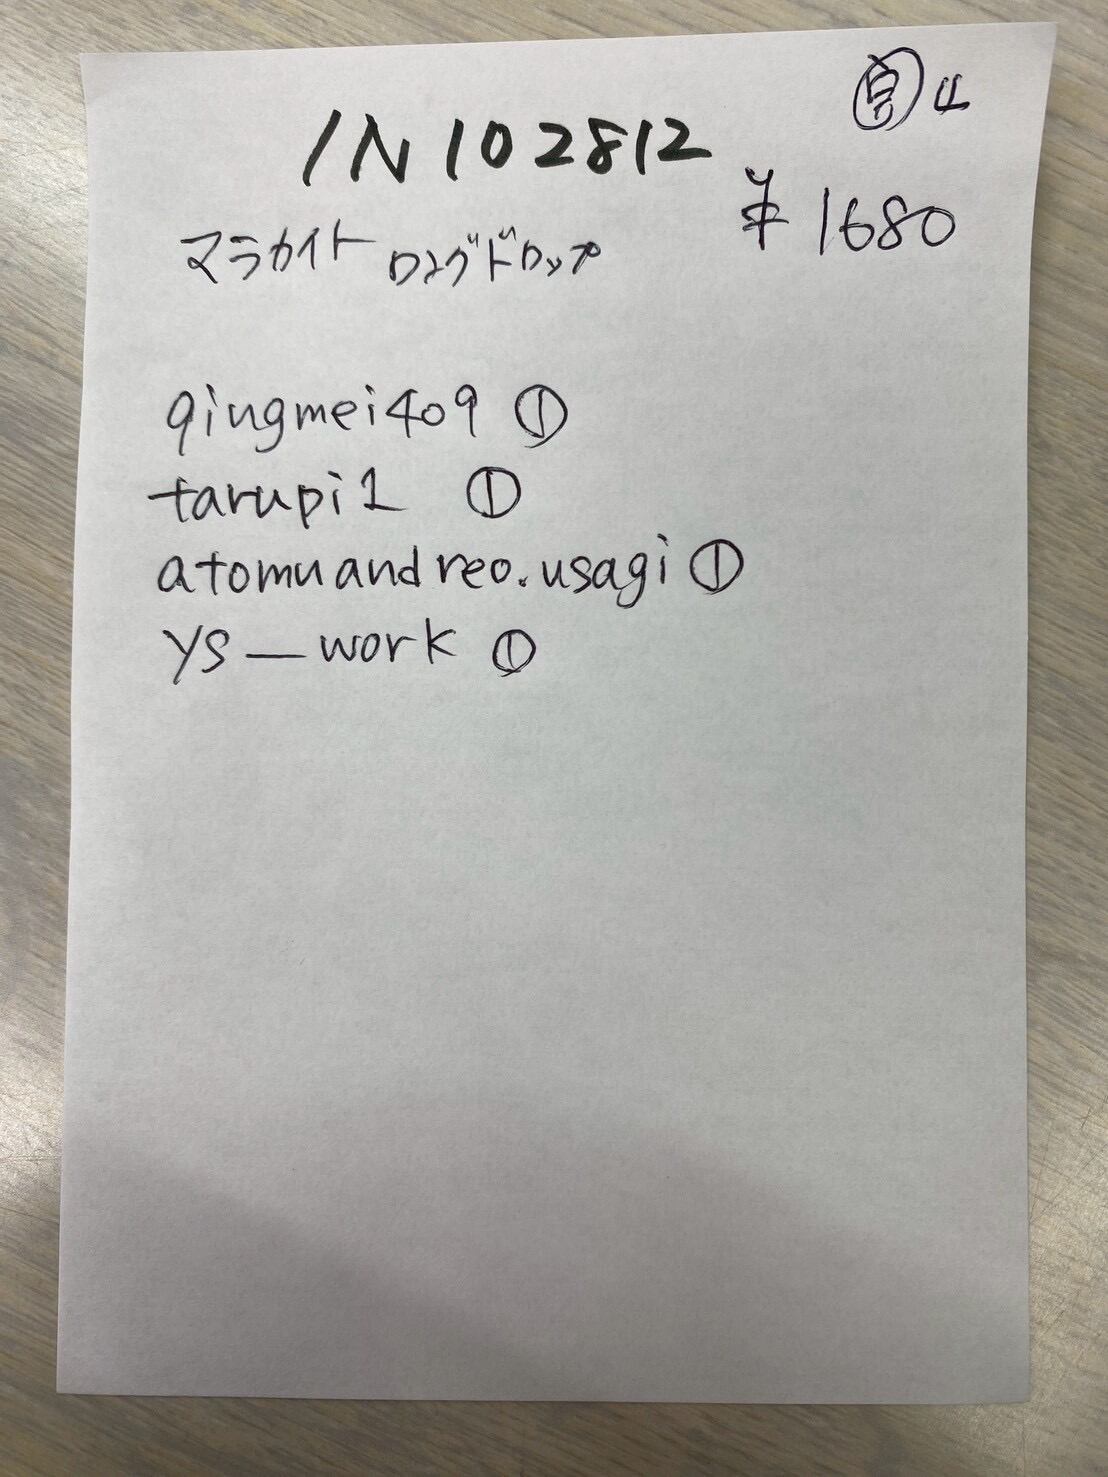 IN102812
¥1680
マラカイト ロングドロップ
qingmei409 ①
tarupi1 ①
atomuandreo.usagi ①
ys_work ①